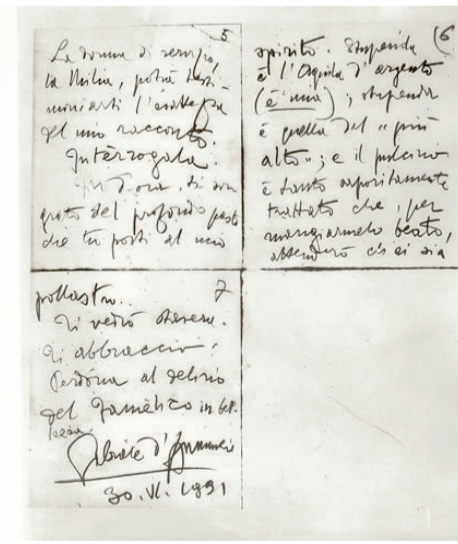 5
La donna di servizio,
la Milia, potrà testi-
moniarti l'esattezza
del mio racconto.
Intèrrogala.
Fin d'ora, ti son
grato del profondo pasto
che tu porti al mio
6
spirito. Stupenda
è l'Aquila d'argento
(è una); stupenda
è quella del "più
alto"; e il pulcino
è tanto saporitamente
trattato che, per
mangiarmelo beato,
attenderò ch'ei sia
7
pollastro..
Ti vedrò stasera.
Ti abbraccio.
Perdóna al delirio
del famèlico in bel-
lezza.
Gabriele d'Annunzio
30. VI. 1931